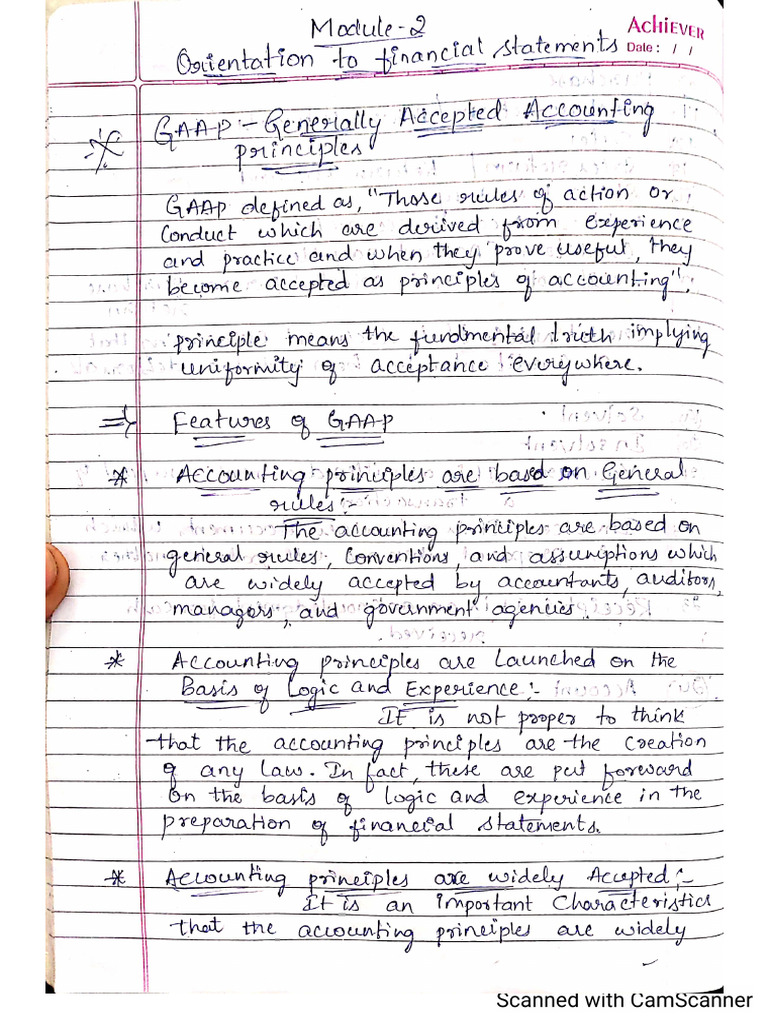 Module-2
ACHIEVER
Orientation to financial statements
Date: / /
GAAP:- Generally Accepted Accounting
principles
GAAP defined as, "Those rules of action or
conduct which are derived from experience
and practice and when they prove useful, they
become accepted as principles of accounting".
principle means the fundmental truth implying
uniformity of acceptance everywhere.
⇒ Features of GAAP
* Accounting principles are based on General
rules:-
The accounting principles are based on
general rules, conventions, and assumptions which
are widely accepted by accountants, auditors,
managers, and government agencies.
* Accounting principles are Launched on the
Basis of Logic and Experience:-
It is not proper to think
that the accounting principles are the creation
of any Law. In fact, these are put forward
on the basis of logic and experience in the
preparation of financial statements.
* Accounting principles are widely Accepted:-
It is an important Characteristics
that the accounting principles are widely
Scanned with CamScanner